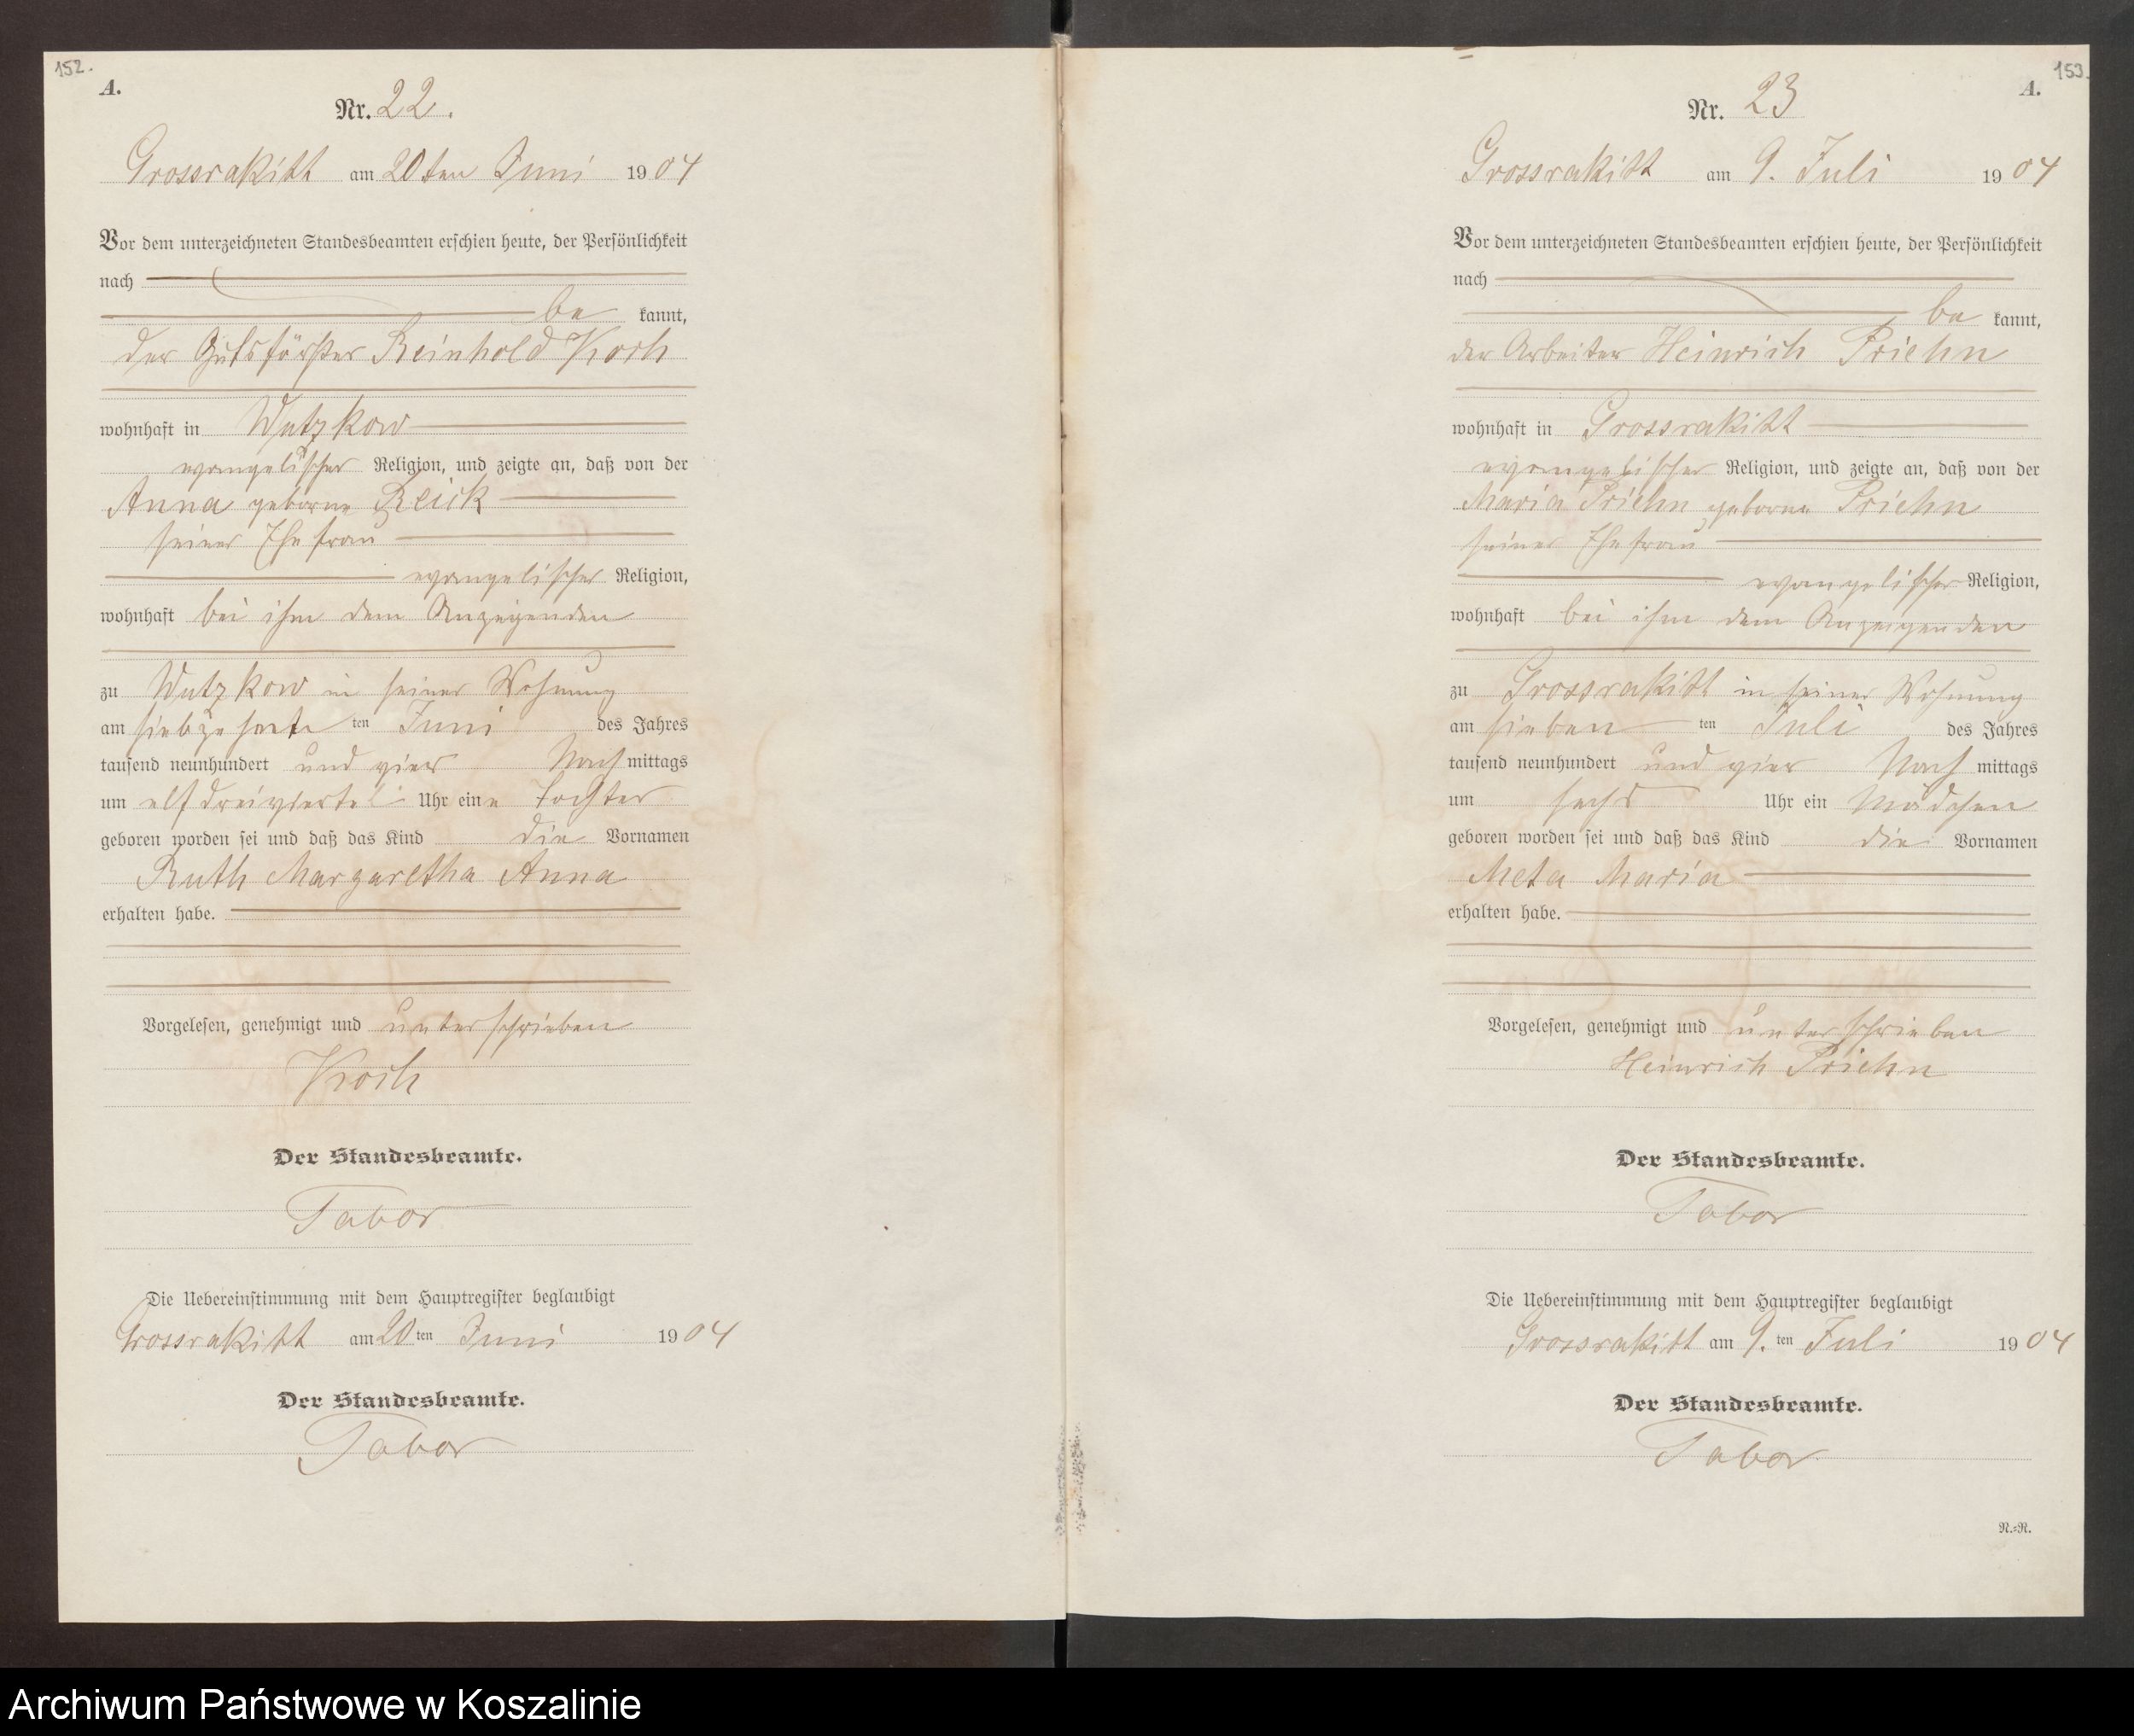 152.
A.
Nr. 22.
Grossrakitt am 20ten Juni 1904
Vor dem unterzeichneten Standesbeamten erschien heute, der Persönlichkeit
nach
be kannt,
der Gutsförster Reinhold Koch
wohnhaft in Wutzkow
evangelischer Religion, und zeigte an, daß von der
Anna geborne Reick
seiner Ehefrau
evangelischer Religion,
wohnhaft bei ihm dem Anzeigenden
zu Wutzkow in seiner Wohnung
am siebzehnte ten Juni des Jahres
tausend neunhundert und vier Nach mittags
um elf dreiviertel Uhr eine Tochter
geboren worden sei und daß das Kind die Vornamen
Ruth Margaretha Anna
erhalten habe.
Vorgelesen, genehmigt und unterschrieben
Koch
Der Standesbeamte.
Tabor
Die Uebereinstimmung mit dem Hauptregister beglaubigt
Grossrakitt am 20ten Juni 1904
Der Standesbeamte.
Tabor
153.
A.
Nr. 23
Grossrakitt am 9. Juli 1904
Vor dem unterzeichneten Standesbeamten erschien heute, der Persönlichkeit
nach
be kannt,
der Arbeiter Heinrich Priehn
wohnhaft in Grossrakitt
evangelischer Religion, und zeigte an, daß von der
Maria Priehn geborne Priehn
seiner Ehefrau
evangelischer Religion,
wohnhaft bei ihm dem Anzeigenden
zu Grossrakitt in seiner Wohnung
am sieben ten Juli des Jahres
tausend neunhundert und vier Nach mittags
um sechs Uhr ein Mädchen
geboren worden sei und daß das Kind die Vornamen
Meta Maria
erhalten habe.
Vorgelesen, genehmigt und unterschrieben
Heinrich Priehn
Der Standesbeamte.
Tabor
Die Uebereinstimmung mit dem Hauptregister beglaubigt
Grossrakitt am 9. ten Juli 1904
Der Standesbeamte.
Tabor
N.=N.
Archiwum Państwowe w Koszalinie